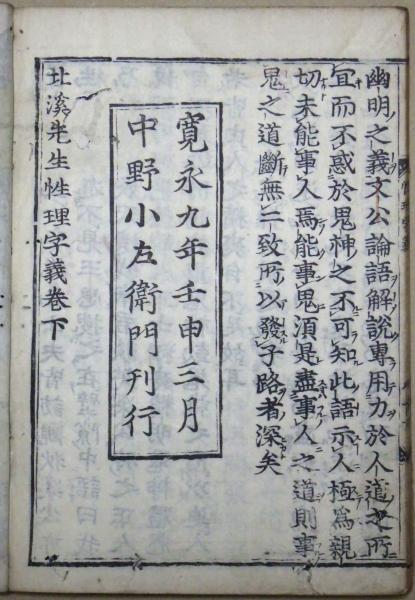 幽明之義文公論語解說專用力於人道之所
宜而不惑於鬼神之不可知此語示人極爲親
切未能事人焉能事鬼須是盡事人之道則事
鬼之道斷無二致所以發子路者深矣
寬永九年壬申三月
中野小左衛門刊行
北溪先生性理字義卷下